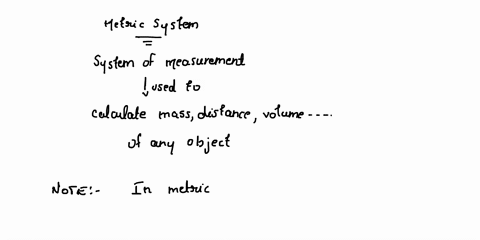 Metric System
System of measurement
used to
calculate mass, distance, volume ----
of any object
NOTE:- In metric